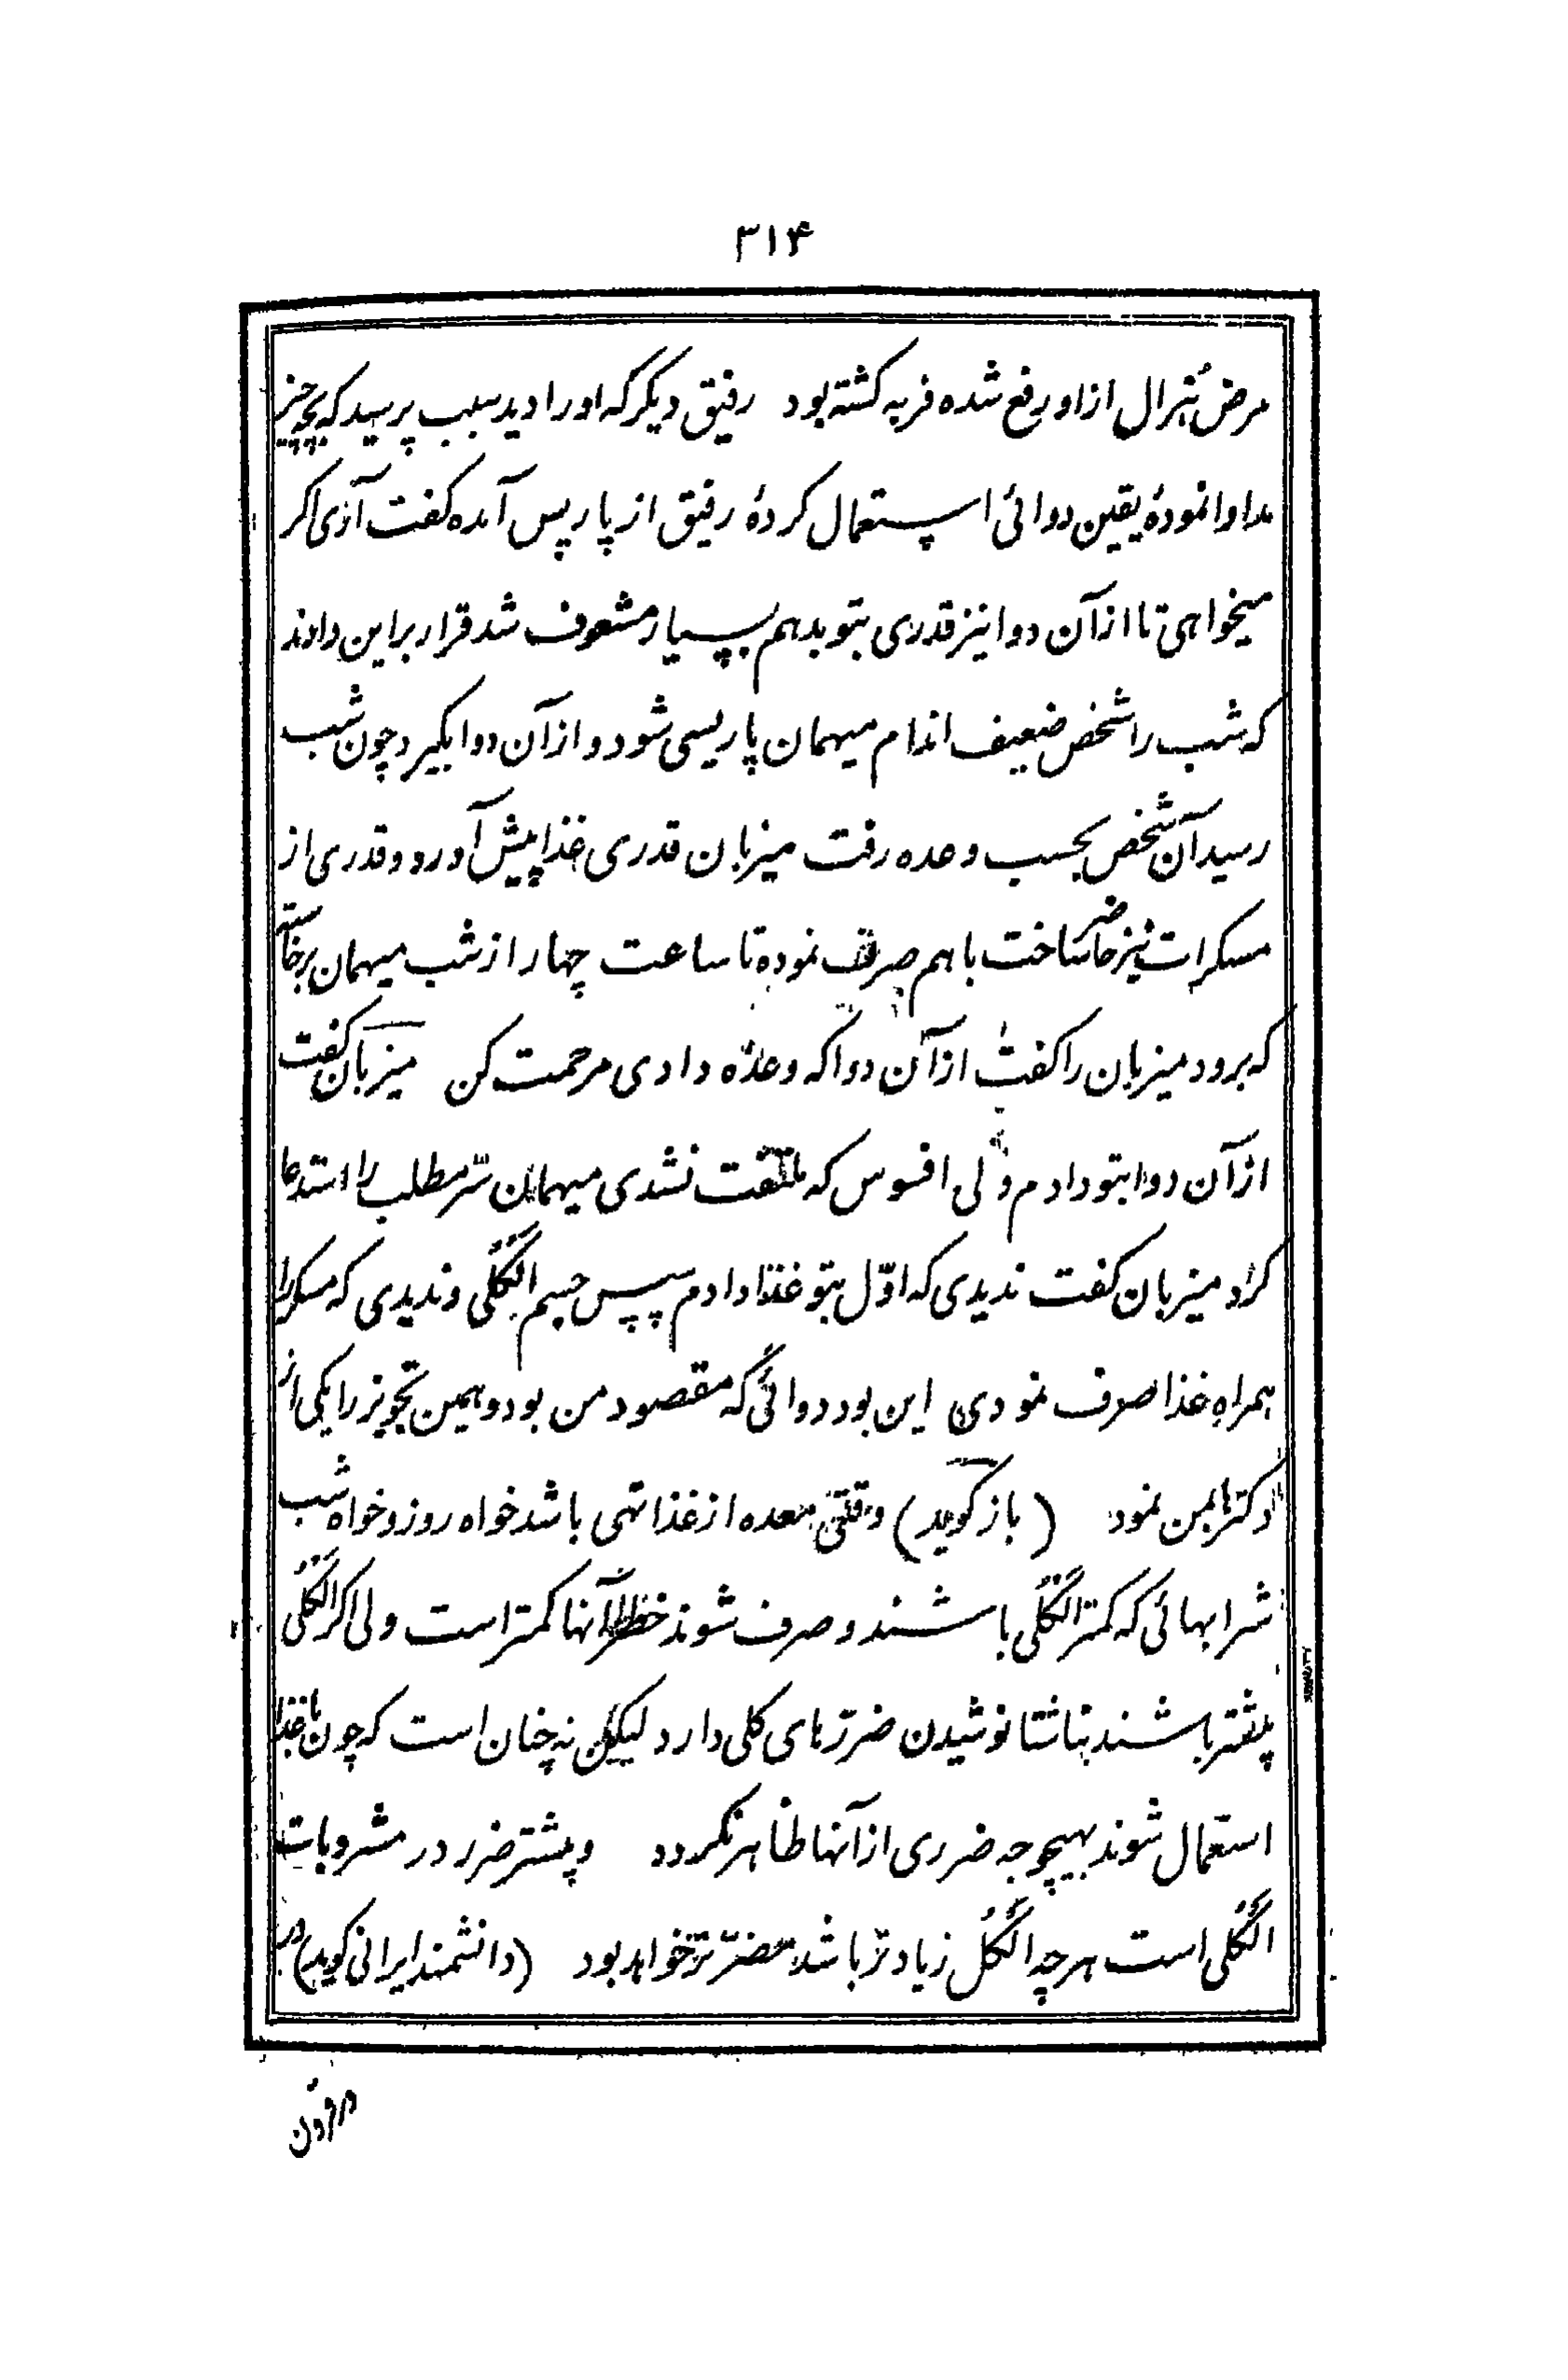 ۳۱۴
مرض نُبرال از او رفع شده فربه کشته بود رفیق دیکر که اورا دید سبب پرسید که بچه چیز
مداوا نمودهٔ یقین دوائی استعمال کردهٔ رفیق از پاریس آمده کفت آری اکر
میخواهی تا از آن دوا نیز قدری بتو بدهم بسیار مشعوف شد قرار براین دادند
که شب را شخص ضعیف اندام میهمان پاریسی شود و از آن دوا بکیرد چون شب
رسید آن شخص بحسب وعده رفت میزبان قدری غذا پیش آورد و قدری از
مسکرات نیز حاضر ساخت باهم صرف نموده تا ساعت چهار از شب میهمان برخاسته
که برود میزبان را کفت از آن دوا که وعده دادی مرحمت کن میزبان کفت
از آن دوا بتو دادم ولی افسوس که ملتفت نشدی میهمان سرّ مطلب را استدعا
کرد میزبان کفت ندیدی که اوّل بتو غذا دادم سپس جسم الکُلی و ندیدی که مسکر را
همراهِ غذا صرف نمودی این بود دوائی که مقصود من بود و همین تجویز را یکی از
دکترها بمن نمود (باز کوید) وقتی معده از غذا تهی باشد خواه روز و خواه شب
شرابهائی که کمتر الکُلی باشند و صرف شوند خطر آنها کمتر است ولی اکر الکُلی
بیشتر باشند بناشتا نوشیدن ضررهای کلی دارد لیکن نه چنان است که چون با غذا
استعمال شوند بهیچوجه ضرری از آنها ظاهر نکردد و بیشتر ضرر در مشروبات
الکُلی است هرچه الکُل زیادتر باشد مضرّتر خواهد بود (دانشمند ایرانی کوید) در